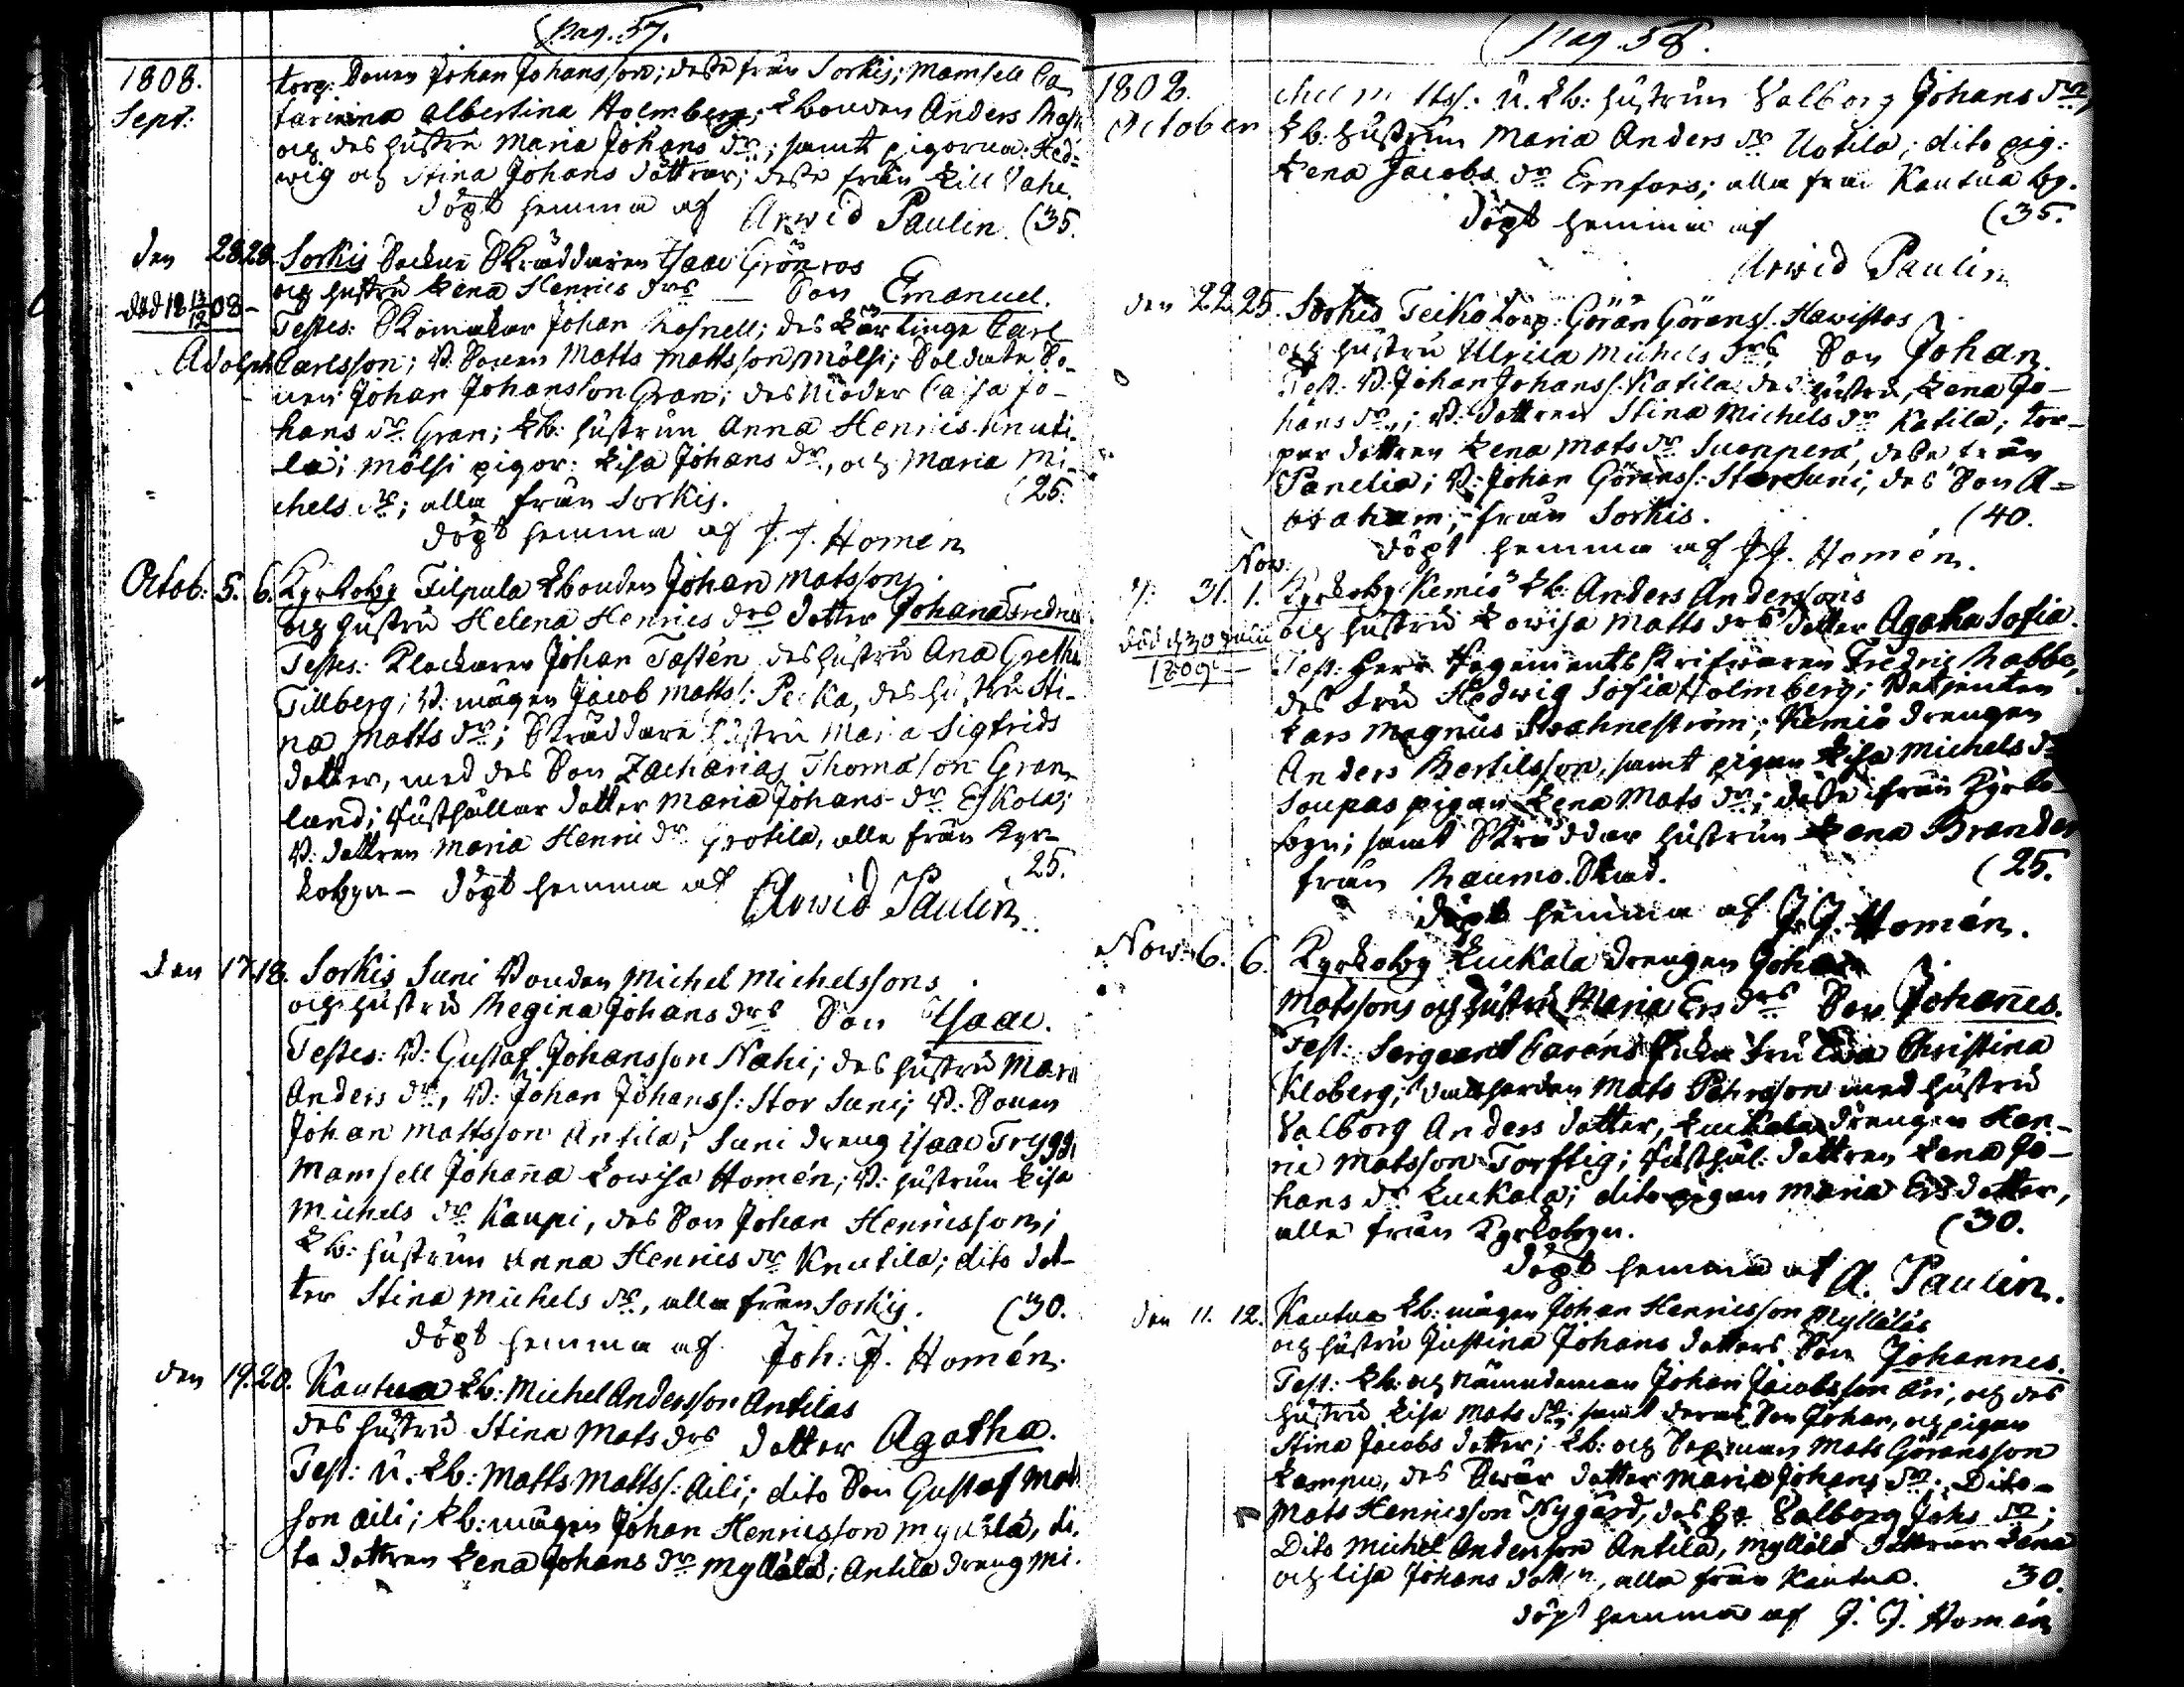 pag. 57.
1808. torp: Sonen Johan Johansson; desse från Sorkis; Mamsell Ca
Sept: tarinna Albertina Holmberg; Lbonden Anders
och des hustru Maria Johans dr; samt pigorna: Hed=
wig och Stina Johans döttrar; desse från Lill Vahe
döpt hemma af Arwid Paulin. (35.
den 28. 28. Sorkis Sockne Skräddaren Isaac Grönroos
och hustru Lena Henrics drs Son Emanuel.
död 18 13/12 08 - Testes: Skomakar Johan Rosnell; des Lärlinge Carl
Adolph Carlsson; B. Sonen Matts Mattsson Mölsi; Soldate So-
nen Johan Johansson Gran; des Moder Caisa Jo-
hans dr Gran; Lb: hustrun Anna Henrics Knuti-
la; Mölsi pigor: Lisa Johans dr, och Maria Mi-
chels dr; alla från Sorkis. (25.
döpt hemma af J. J. Homén
Octob: 5. 6. Kyrkoby Filpula Lbonden Johan Matssons
och hustru Helena Henrics drs dotter Johana Fredrica
Testes: Klockaren Johan Tastén des hustru Ana Gretha
Tillberg; B: mågen Jacob Matts: Pecka, des hustru Sti-
na Matts dr; Skräddare hustru Maria Sigfrids
dotter, med des Son Zacharias Thomasson Gran-
lund; Rusthållar dotter Maria Johans dr Eskola;
B: dottren Maria Henric dr Yrotila, alla från Kyr-
kobyn - döpt hemma af Arwid Paulin 25.
den 17. 18. Sorkis Suni Bonden Michel Michelssons
och hustru Regina Johans drs Son Isaac.
Testes: B: Gustaf Johansson Nahi; des hustru Maria
Anders dr, B: Johan Johanss: Stor Suni; B: Sonen
Johan Mattsson Antila; Suni dreng Isaac Trygg;
Mamsell Johana Lowisa Homén; B: hustrun Lisa
Michels dr Kaupi, des Son Johan Henricsson;
Lb: hustrun Anna Henrics dr Knutila; dito dot-
ter Stina Michels dr, alla från Sorkis. (30.
döpt hemma af Joh: J. Homén.
den 19. 20. Kautua Lb: Michel Andersson Antilas
des hustru Stina Mats drs dotter Agatha.
Test: U. Lb: Matts Matts: Aili; dito Son Gustaf Mats
son Aili; Lb: mågen Johan Henricsson Myllälä, di-
to dottren Lena Johans dr Myllälä; Antila dreng Mi-
pag. 58.
1808. chel Matss: U. Lb: hustrun Valborg Johans dr,
October Lb: hustrun Maria Anders dr Uotila; dito pig:
Lena Jacobs dr Ernfors; alla från Kautua by.
döpt hemma af (35.
Arwid Paulin
den 22. 25. Sorkis Teiko torp: Göran Görans: Hawistos
och hustru Ulrica Michels drs Son Johan
Test: B. Johan Johanss: Katila, des hustru, Lena Jo-
hans dr; B: dottren Stina Michels dr Katila; tor-
par dottren Lena Mats dr Suonperä, desse från
Panelia; B: Johan Görans: Stor Suni, des Son A-
braham; från Sorkis. (40.
döpt hemma af J J. Homén.
Nov:
31. 1. Kyrkoby Kemis Lb: Anders Anderssons
och hustru Lowisa Matts drs dotter Agatha Sofia.
död d. 30 1809 Test: Herr Regements Skrifwaren Fredric Nabbe,
des fru Hedwig Sofia Holmberg; Betjenten
Lars Magnus Strahneström; Kemis drengen
Anders Bertilsson, samt pigan Lisa Michels dr
Soupas pigan Lena Mats dr; desse från Kyrko-
byn; samt Skräddar hustrun Lena Brander
från Raumo Stad. (25.
döpt hemma af J. J. Homén.
Nov: 6. 6. Kyrkoby Luckala drengen Johan
Matssons och hustru Maria Ers drs Son Johannes.
Test: Sergeant Caréns Enka fru Christina
Kloberg; Mats Pehrsson med hustru
Valborg Anders dotter, Luckala drengen Hen-
ric Matsson Torftig; Rusthål: dottren Lena Jo-
hans dr Luckala; dito pigan Maria Ersdotter,
alla från Kyrkobyn. (30.
döpt hemma af A. Paulin.
den 11. 12. Kautua Lb: mågen Johan Henricsson Mylläläs
och hustru Justina Johans dotters Son Johannes.
Test: Lb: och Nämndeman Johan Jacobsson Äri, och des
hustru Lisa Mats dr, samt deras Son Johan, och pigan
Stina Jacobs dotter; Lb: och Sexman Mats Göransson
Lampu, des Swär dotter Maria Johans dr; Dito
Mats Henricsson Nygård, des h. Valborg Johs dr;
Dito Michel Andersson Antila, Myllälä döttrar Lena
och Lisa Johans dotter, alla från Kautua. 30.
döpt hemma af J. J. Homén